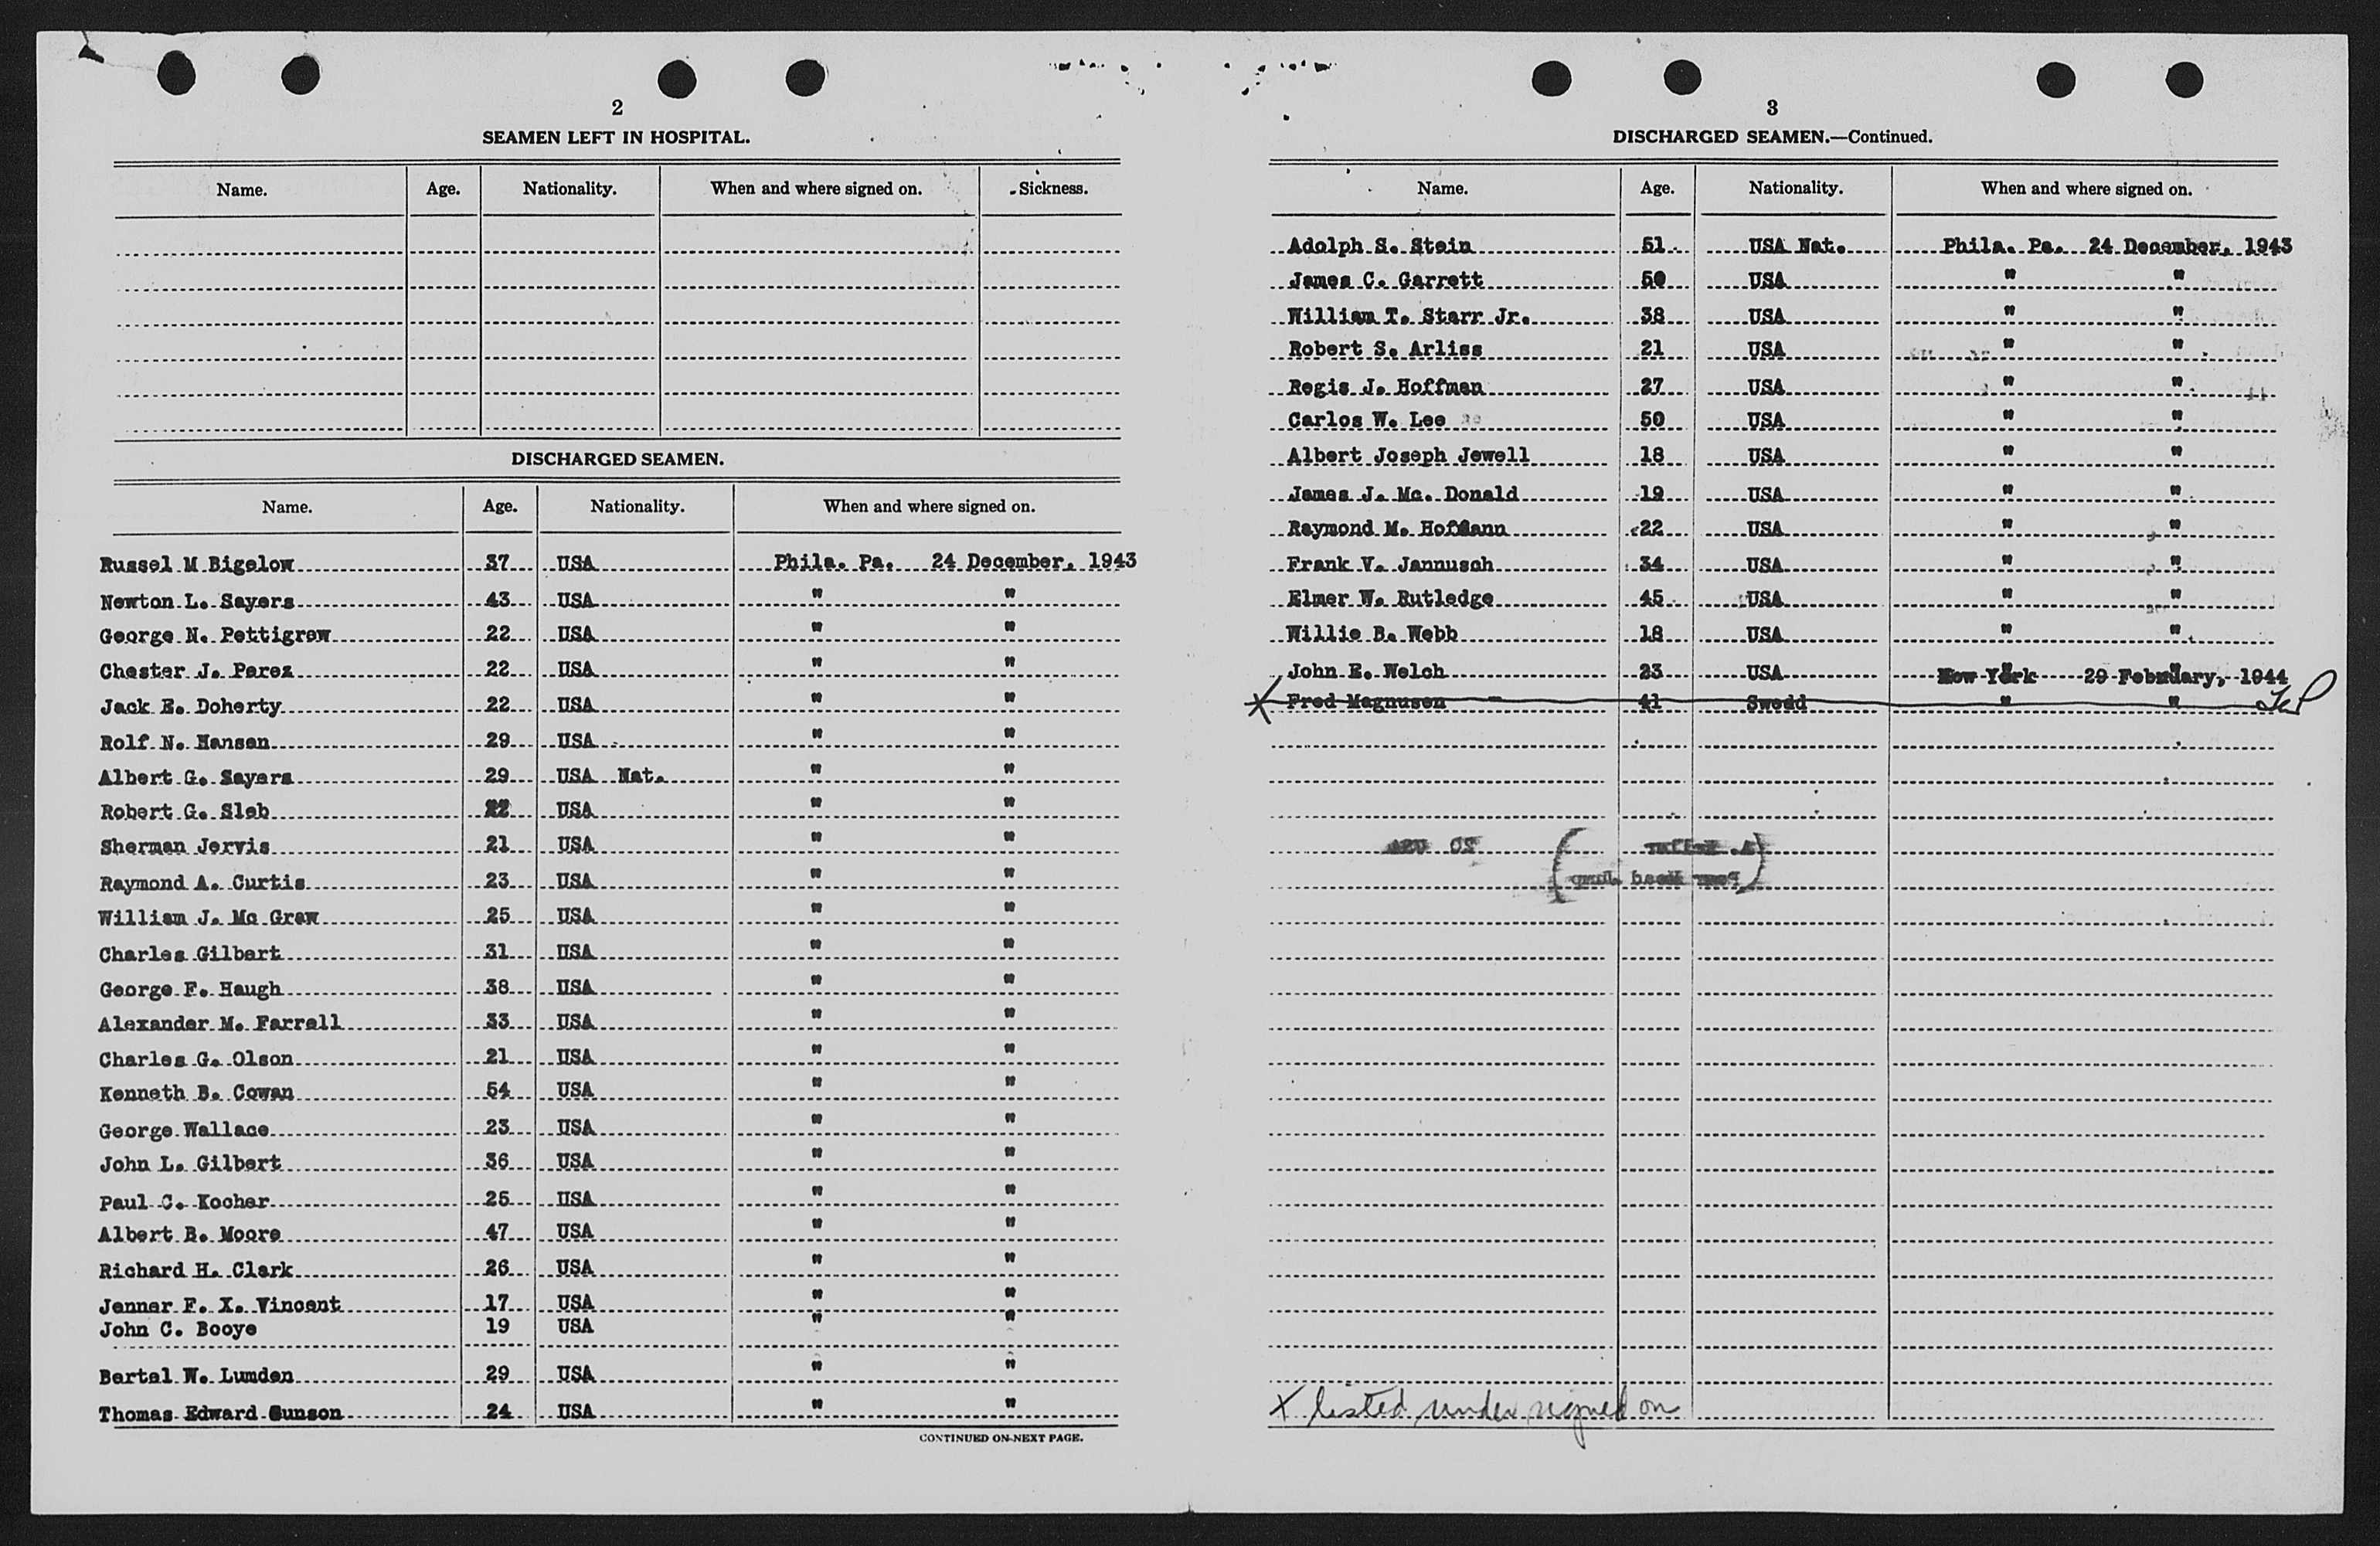 2
SEAMEN LEFT IN HOSPITAL.
Name. Age. Nationality. When and where signed on. Sickness.
DISCHARGED SEAMEN.
Name. Age. Nationality. When and where signed on.
Russel M Bigelow 37 USA Phila. Pa. 24 December, 1943
Newton L. Sayers 43 USA " "
George N. Pettigrew 22 USA " "
Chester J. Perez 22 USA " "
Jack E. Doherty 22 USA " "
Rolf N. Hansen 29 USA " "
Albert G. Sayers 29 USA Nat. " "
Robert G. Sleb 22 USA " "
Sherman Jervis 21 USA " "
Raymond A. Curtis 23 USA " "
William J. Mc Graw 25 USA " "
Charles Gilbert 31 USA " "
George F. Haugh 38 USA " "
Alexander M. Farrell 33 USA " "
Charles G. Olson 21 USA " "
Kenneth B. Cowan 54 USA " "
George Wallace 23 USA " "
John L. Gilbert 36 USA " "
Paul C. Kocher 25 USA " "
Albert B. Moore 47 USA " "
Richard H. Clark 26 USA " "
Jennar F. X. Vincent 17 USA " "
John C. Booye 19 USA " "
Bertal W. Lumden 29 USA " "
Thomas Edward Gunson 24 USA " "
CONTINUED ON NEXT PAGE.
3
DISCHARGED SEAMEN.—Continued.
Name. Age. Nationality. When and where signed on.
Adolph S. Stein 51 USA Nat. Phila. Pa. 24 December, 1943
James C. Garrett 50 USA " "
William T. Starr Jr. 38 USA " "
Robert S. Arliss 21 USA " "
Regis J. Hoffman 27 USA " "
Carlos W. Lee 50 USA " "
Albert Joseph Jewell 18 USA " "
James J. Mc. Donald 19 USA " "
Raymond M. Hofmann 22 USA " "
Frank V. Jannusch 34 USA " "
Elmer W. Rutledge 45 USA " "
Willie B. Webb 18 USA " "
John E. Welch 23 USA New York 29 February, 1944
X Fred Magnusen 41 Swedd " "
X listed under signed on